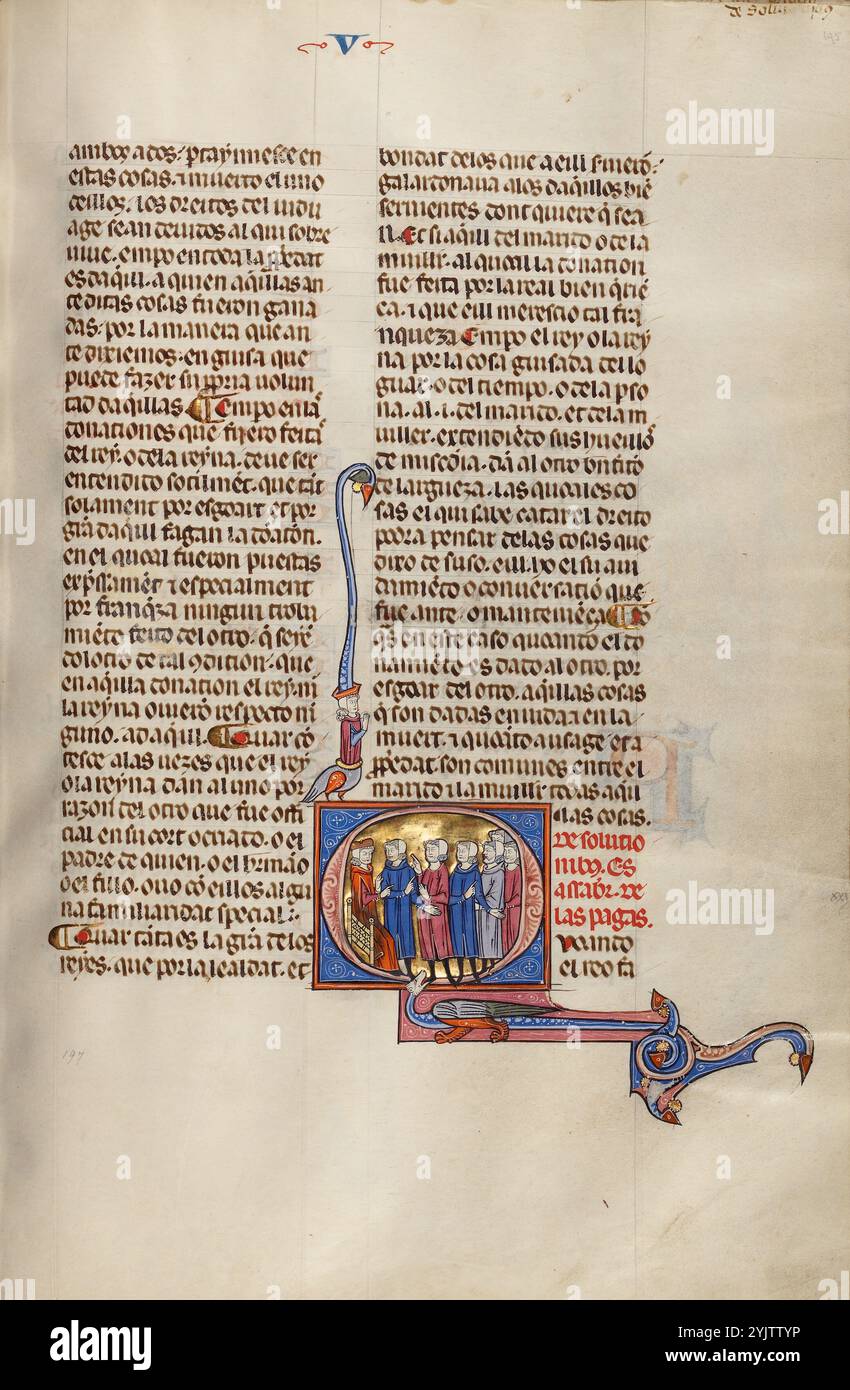 V
de Solu
195
ambox ados. ⁊ prayimesce en
estas cosas. ⁊ muerto el uno
dellos. los dreitos del uidu
age sean deuidos al qui sobre
uiue. empo en toda la ppedat
es daq̃ll. a quien aq̃llas an
teditas cosas fueron gana
das. por la manera que an
te dixiemos. en guisa que
puede fazer su ppria uolun
tad daq̃llas. ¶ Empo en las
donationes que fuerõ feitas
del rey. o dela reyna. deue ser
entendido sotilmẽt. que tãt
solament por esgoart et por
grã daqui fagan la donatõn.
en el quoal fueron puestas
exp̃ssamẽt ⁊ especialment
por franq̃za ningun
miẽto feito del otro. q̃
de tal ꝯdition. que
en aq̃lla donation el rey. ni
la reyna ouierõ respecto ni
guno. ad aqui. ¶ Quar cõ
tesce alas uezes que el rey
o la reyna dan al uno por
razon del otro que fue offi
cial en su cort o criado. o el
padre de quien. o el hrmão
o el fillo. o uo cõ eillos algu
na familiaridat special.
¶ Quar tãta es la grã de los
reyes. que por la lealdat. et
bondat delos que a eill siruierõ.
galardonaua alos daq̃llos biẽ
seruientes dont quiere q̃ sea
n. Et si aq̃ill del marido o de la
muiller. al quoal la donation
fue feita por la real bien q̃riẽ
ça. ⁊ que eill merescio tal frã
nqueza. Empo el rey o la rey
na por la cosa guisada del lo
guar. o del tiempo. o dela pso
na. al .i. del marido. et dela m
uiller. extendiẽdo sus hueillos
de misc̃dia. dã al otro bñfito
de largueza. las quoales co
sas el qui sabe catar el dreito
podra pensar delas cosas que
dixo de suso.
damiẽto o conuersatiõ que
fue ante. o mantenẽça. ¶
q̃ en este caso quoanto el do
namẽto es dado al otro. por
esgoart del otro. aq̃llas cosas
q̃ son dadas en uida ⁊ en la
muert. ⁊ quoãto a usage et a
ppedat. son comunes entre el
marido ⁊ la muiller todas aq̃ll
las cosas.
De solutio
nibꝰ. Es
a saber. de
las pagas.
Quoanto
el
197
alamy
Image ID: 2YJTTYP
www.alamy.com